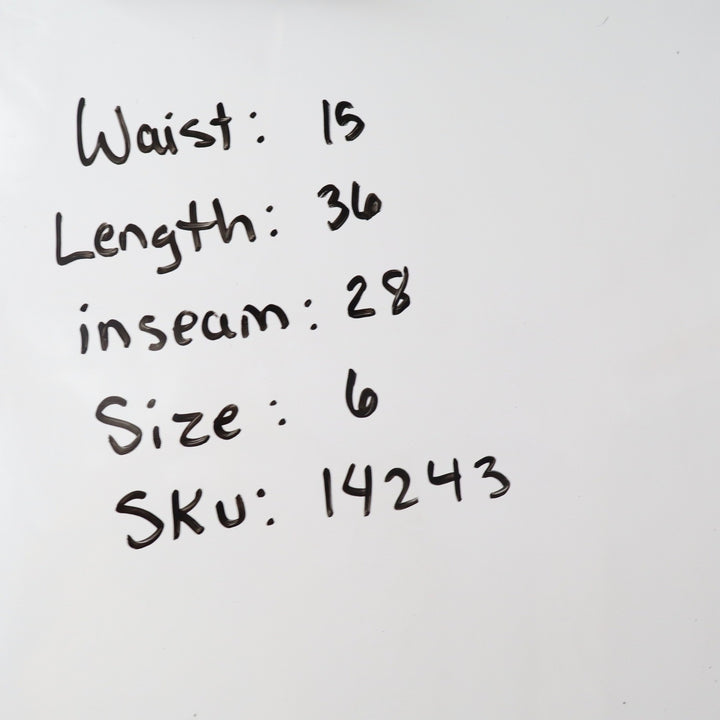 Waist: 15
Length: 36
inseam: 28
Size: 6
SKU: 14243